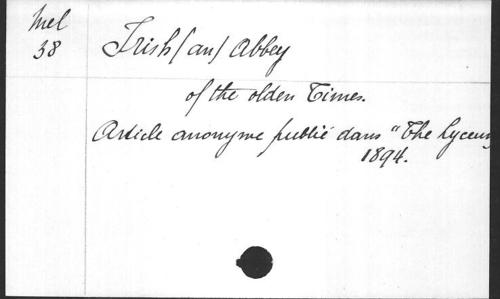 Mel
38
Irish (an) Abbey
of the olden Times.
Article anonyme publié dans "The Lyceum
1894.